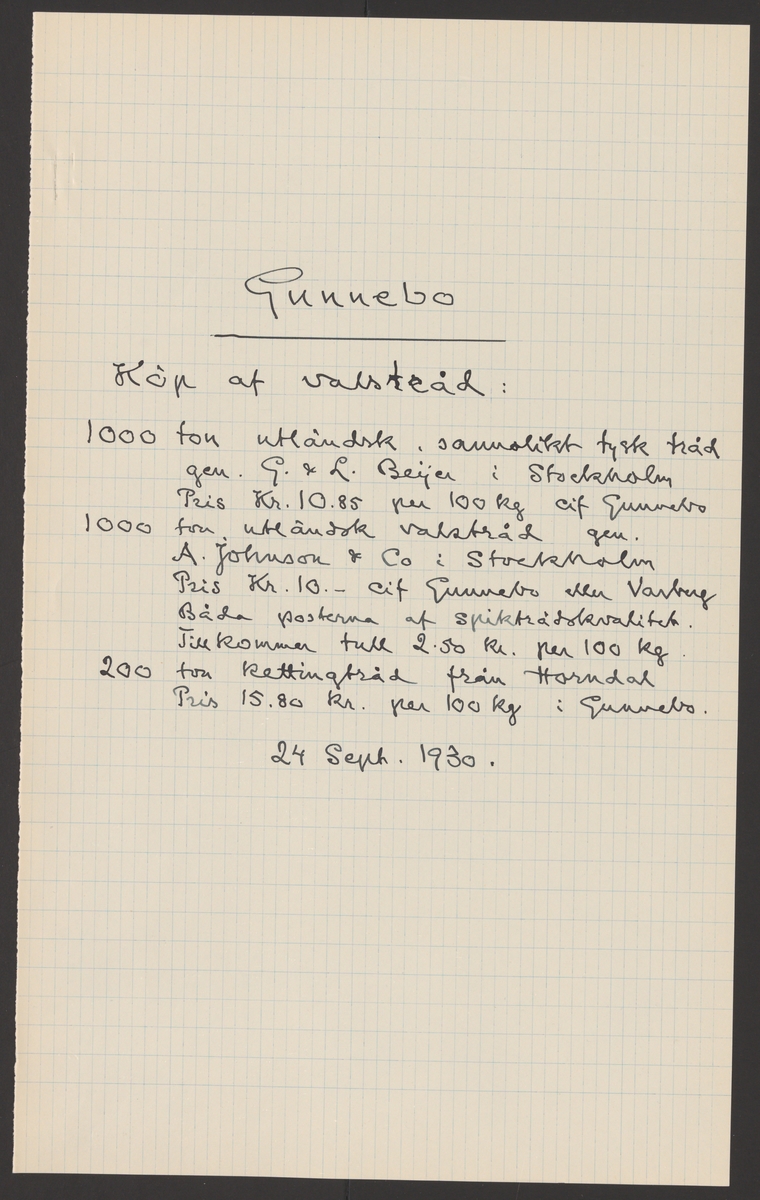 Gunnebo
Köp af valstråd:
1000 ton utländsk, sannolikt tysk tråd
gen. G. & L. Beijer i Stockholm
Pris Kr. 10.85 per 100 kg cif Gunnebo
1000 ton utländsk valstråd gen.
A. Johnson & Co i Stockholm
Pris Kr. 10.- cif Gunnebo eller Varberg
Båda posterna af spiktrådskvalitet.
Tillkommer tull 2.50 kr. per 100 kg.
200 ton kettingtråd från Horndal
Pris 15.80 kr. per 100 kg i Gunnebo.
24 Sept. 1930.